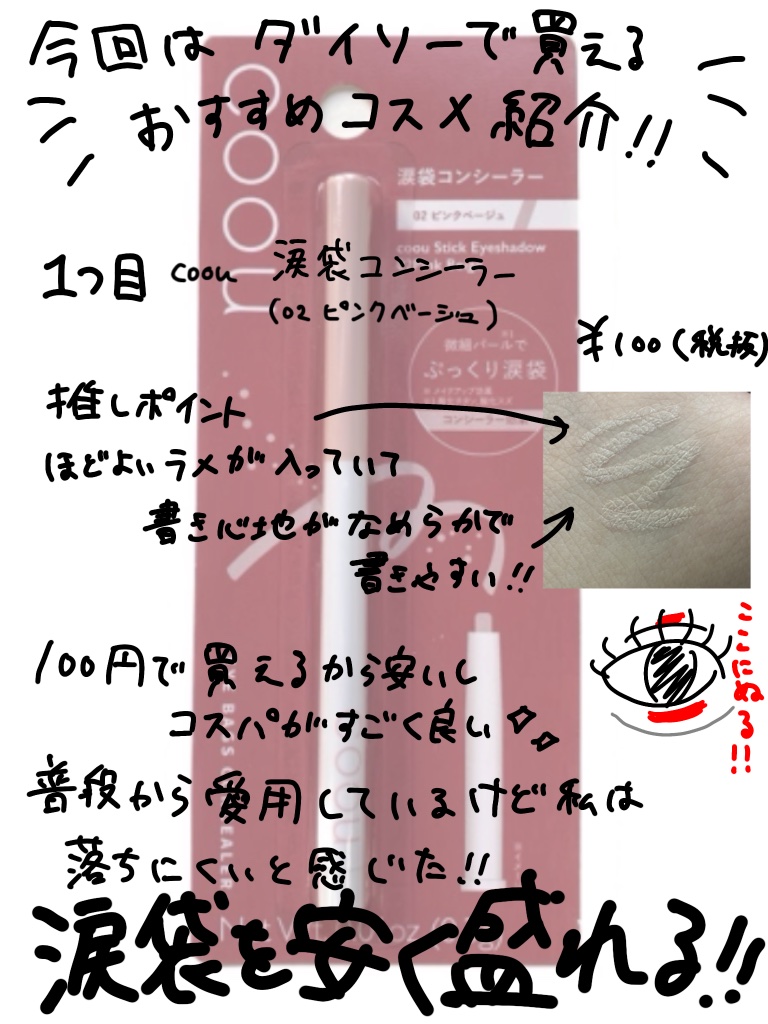 今回は ダイソーで買える
おすすめコスメ紹介!!
coou
涙袋コンシーラー
02 ピンクベージュ
coou Stick Eyeshadow
1つ目 coou 涙袋コンシーラー
(02 ピンクベージュ)
¥100(税抜)
微細パールで
ぷっくり涙袋
推しポイント
ほどよいラメが入っていて
書き心地がなめらかで
書きやすい!!
ここにぬる!!
100円で買えるから安いし
コスパがすごく良い
普段から愛用しているけど私は
落ちにくいと感じた!!
涙袋を安く盛れる!!